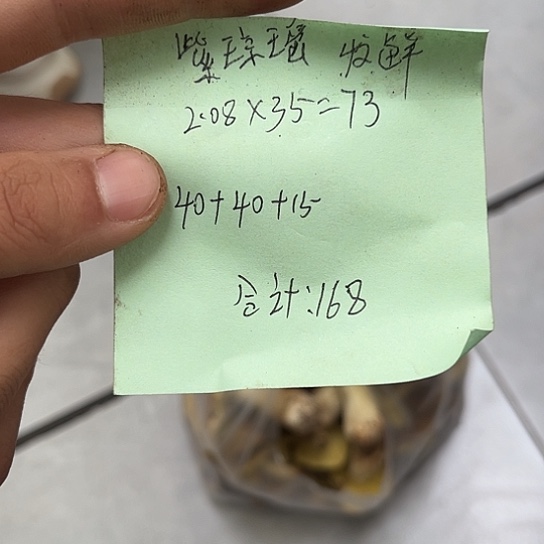 紫琼瑶 收鲜
2.08×35=73
40+40+15
合计:168